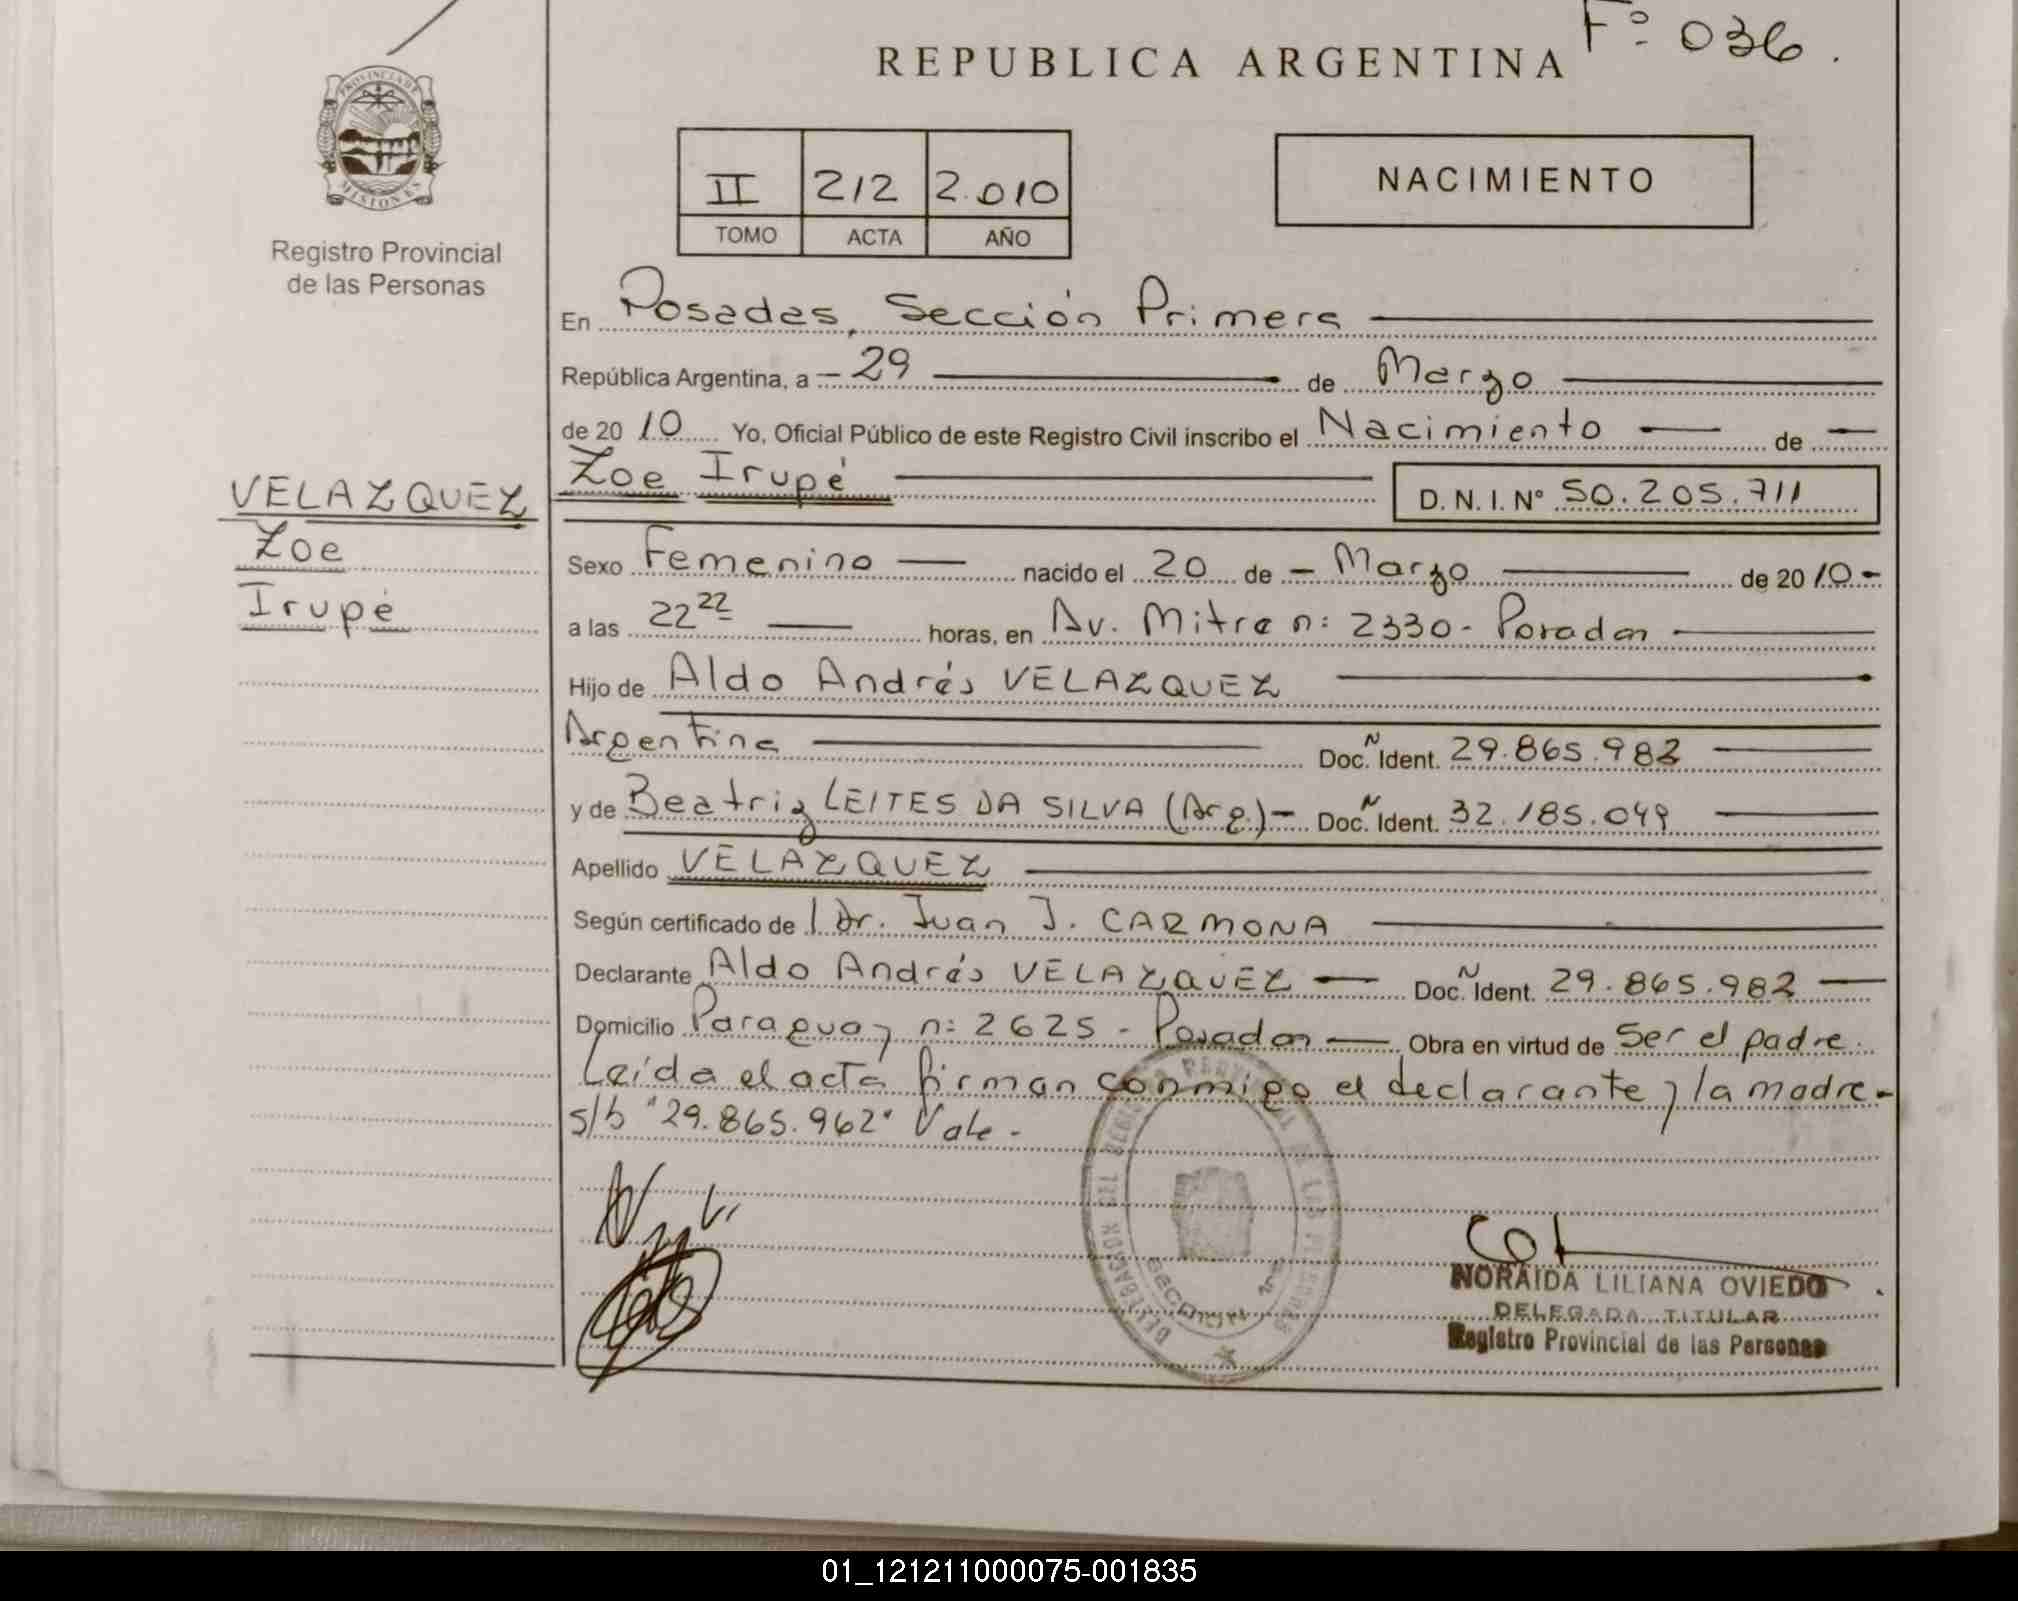 F° 036.
REPUBLICA ARGENTINA
PROVINCIA DE
MISIONES
Registro Provincial
de las Personas
II 212 2.010
TOMO ACTA AÑO
NACIMIENTO
En Posadas, Sección Primera
República Argentina, a 29 de Marzo
de 2010 Yo, Oficial Público de este Registro Civil inscribo el Nacimiento de
Zoe Irupé D. N. I. N° 50.205.711
VELAZQUEZ
Zoe
Irupé
Sexo Femenino nacido el 20 de Marzo de 2010
a las 22 22 horas, en Av. Mitre n: 2330 - Posadas
Hijo de Aldo Andrés VELAZQUEZ
Argentina Doc. Ñ Ident. 29.865.982
y de Beatriz LEITES DA SILVA (Arg.) Doc. Ñ Ident. 32.185.049
Apellido VELAZQUEZ
Según certificado de l Dr. Juan J. CARMONA
Declarante Aldo Andrés VELAZQUEZ Doc. Ñ Ident. 29.865.982
Domicilio Paraguay n: 2625 - Posadas Obra en virtud de Ser el padre.
Leída el acta firman conmigo el declarante y la madre.
s/b "29.865.962" Vale.
DELEGACION DEL REGISTRO PROVINCIAL DE LAS PERSONAS
SECCION 1ra
NORAIDA LILIANA OVIEDO
DELEGADA TITULAR
Registro Provincial de las Personas
01_121211000075-001835